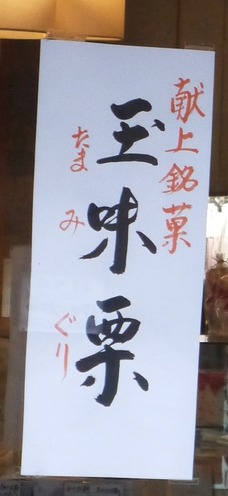 献上銘菓
玉味栗
たまみぐり